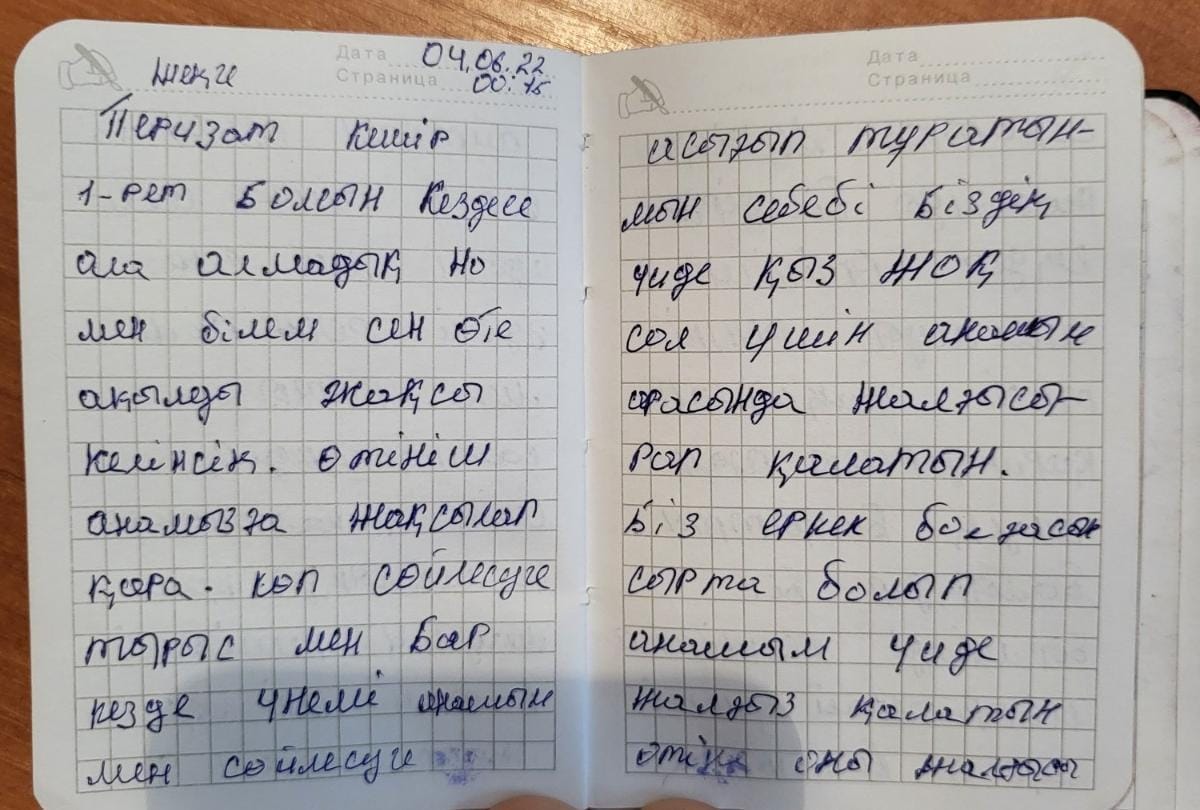 Дата 04.06.22
Жеңге
Страница 00:15
Перизат кешір
1-рет болсын кездесе
ала алмадық но
мен білем сен өте
ақылды жақсы
келінсің. өтініш
анамызға жақсылап
қара. көп сөйлесуге
тырыс мен бар
кезде үнемі анамын
мен сөйлесуге
Дата
Страница
асығып туратын-
мын себебі біздің
үиде қыз жоқ
сол үшін анашым
арасында жалғысы-
рап қалатын.
Біз еркек болғасын
сырта болып
анашым үиде
жалғыз қалатын
өтінем оны жалғысы